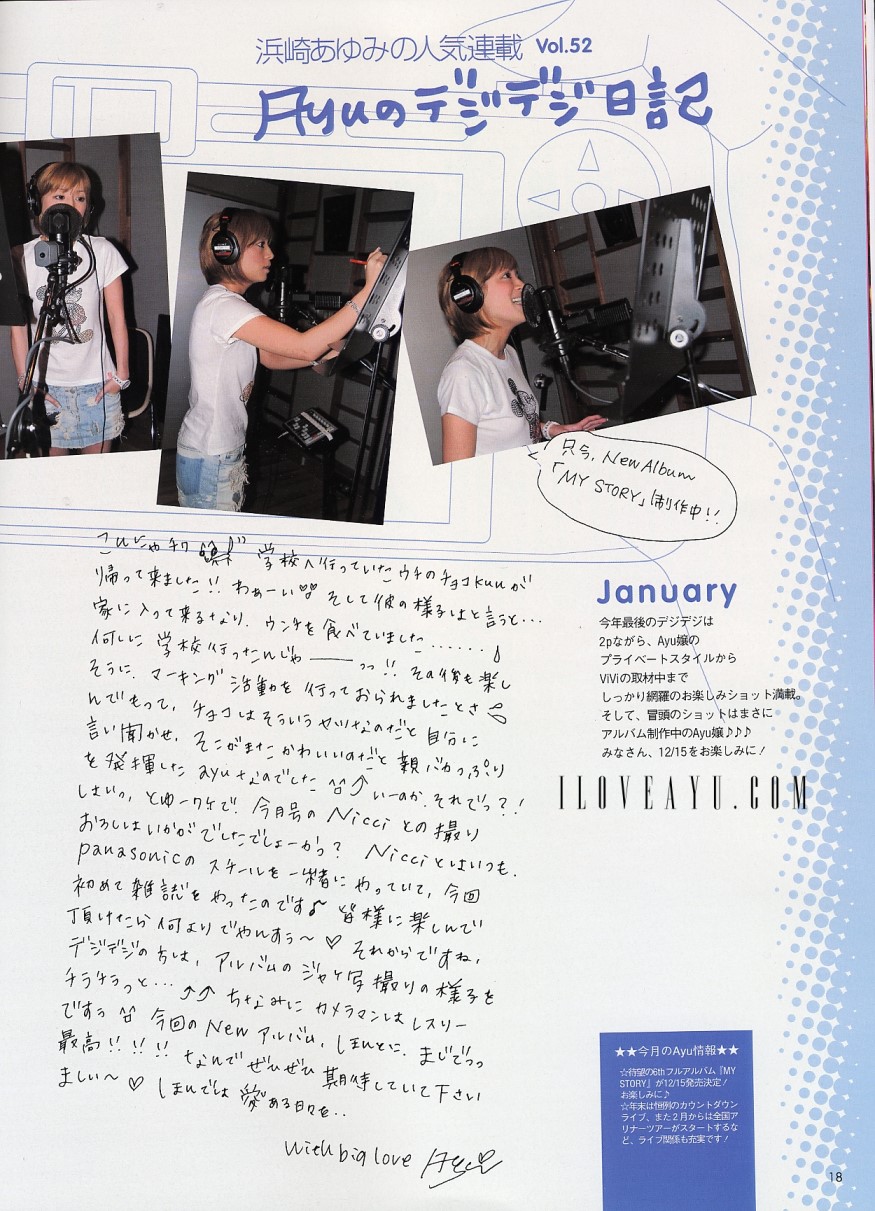 浜崎あゆみの人気連載 Vol.52
Ayuのデジデジ日記
只今、New Album
「MY STORY」制作中!!
こんにちチワ 学校へ行っていたウチのチョコkuuが
帰って来ました!! わぁーい♡♡ そして彼の様子はと言うと…
家に入って来るなり、ウンチを食べていました……♪
何しに学校行ったんじゃ――っっ!! その後も楽し
そうに、マーキング活動を行っておられましたとさ
んでもって、チョコはそういうヤツなのだと自分に
言い聞かせ、そこがまたかわいいのだと親バカっぷり
を発揮したayuなのでした ^^ ⤴ いーのか、それでっ?!
はいっ、とゆーワケで、今月号のNicciとの撮り
おろしはいかがでしたでしょーかっ? Nicciとはいつも、
panasonicのスチールを一緒にやっていて、今回
初めて雑誌をやったのです♪ 皆様に楽しんで
頂けたら何よりでやんすぅ〜♡ それからですね、
デジデジの方は、アルバムのジャケ写撮りの様子を
チラチラっと… ⤴⤴ ちなみにカメラマンはレスリー
ですぅ ^^ 今回のNewアルバム、ほんとに、まじでっっ
最高!!!!! なんでぜひぜひ期待していて下さい
ましぃ〜♡ ほんでは愛ある日々を..
with big love Ayu♡
January
今年最後のデジデジは
2pながら、Ayu嬢の
プライベートスタイルから
ViViの取材中まで
しっかり網羅のお楽しみショット満載。
そして、冒頭のショットはまさに
アルバム制作中のAyu嬢♪♪♪
みなさん、12/15をお楽しみに!
ILOVEAYU.COM
★★今月のAyu情報★★
☆待望の6thフルアルバム『MY
STORY』が12/15発売決定!
お楽しみに♪
☆年末は恒例のカウントダウン
ライブ、また2月からは全国ア
リーナツアーがスタートするな
ど、ライブ関係も充実です!
18